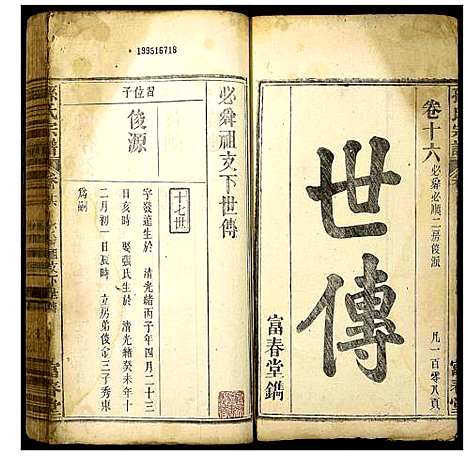 孫氏宗譜
卷十六 必舜必順二房俊源
凡一百零八頁
世傳
富春堂鐫
富春堂
*199516718
必舜祖支下世傳
十七世
習位子
俊源
字發達生於 清光緒丙子年四月二十三
日亥時 娶張氏生於 清光緒癸未年十
二月初一日辰時 立房弟俊金三子秀東
為嗣
孫氏宗譜
富春堂